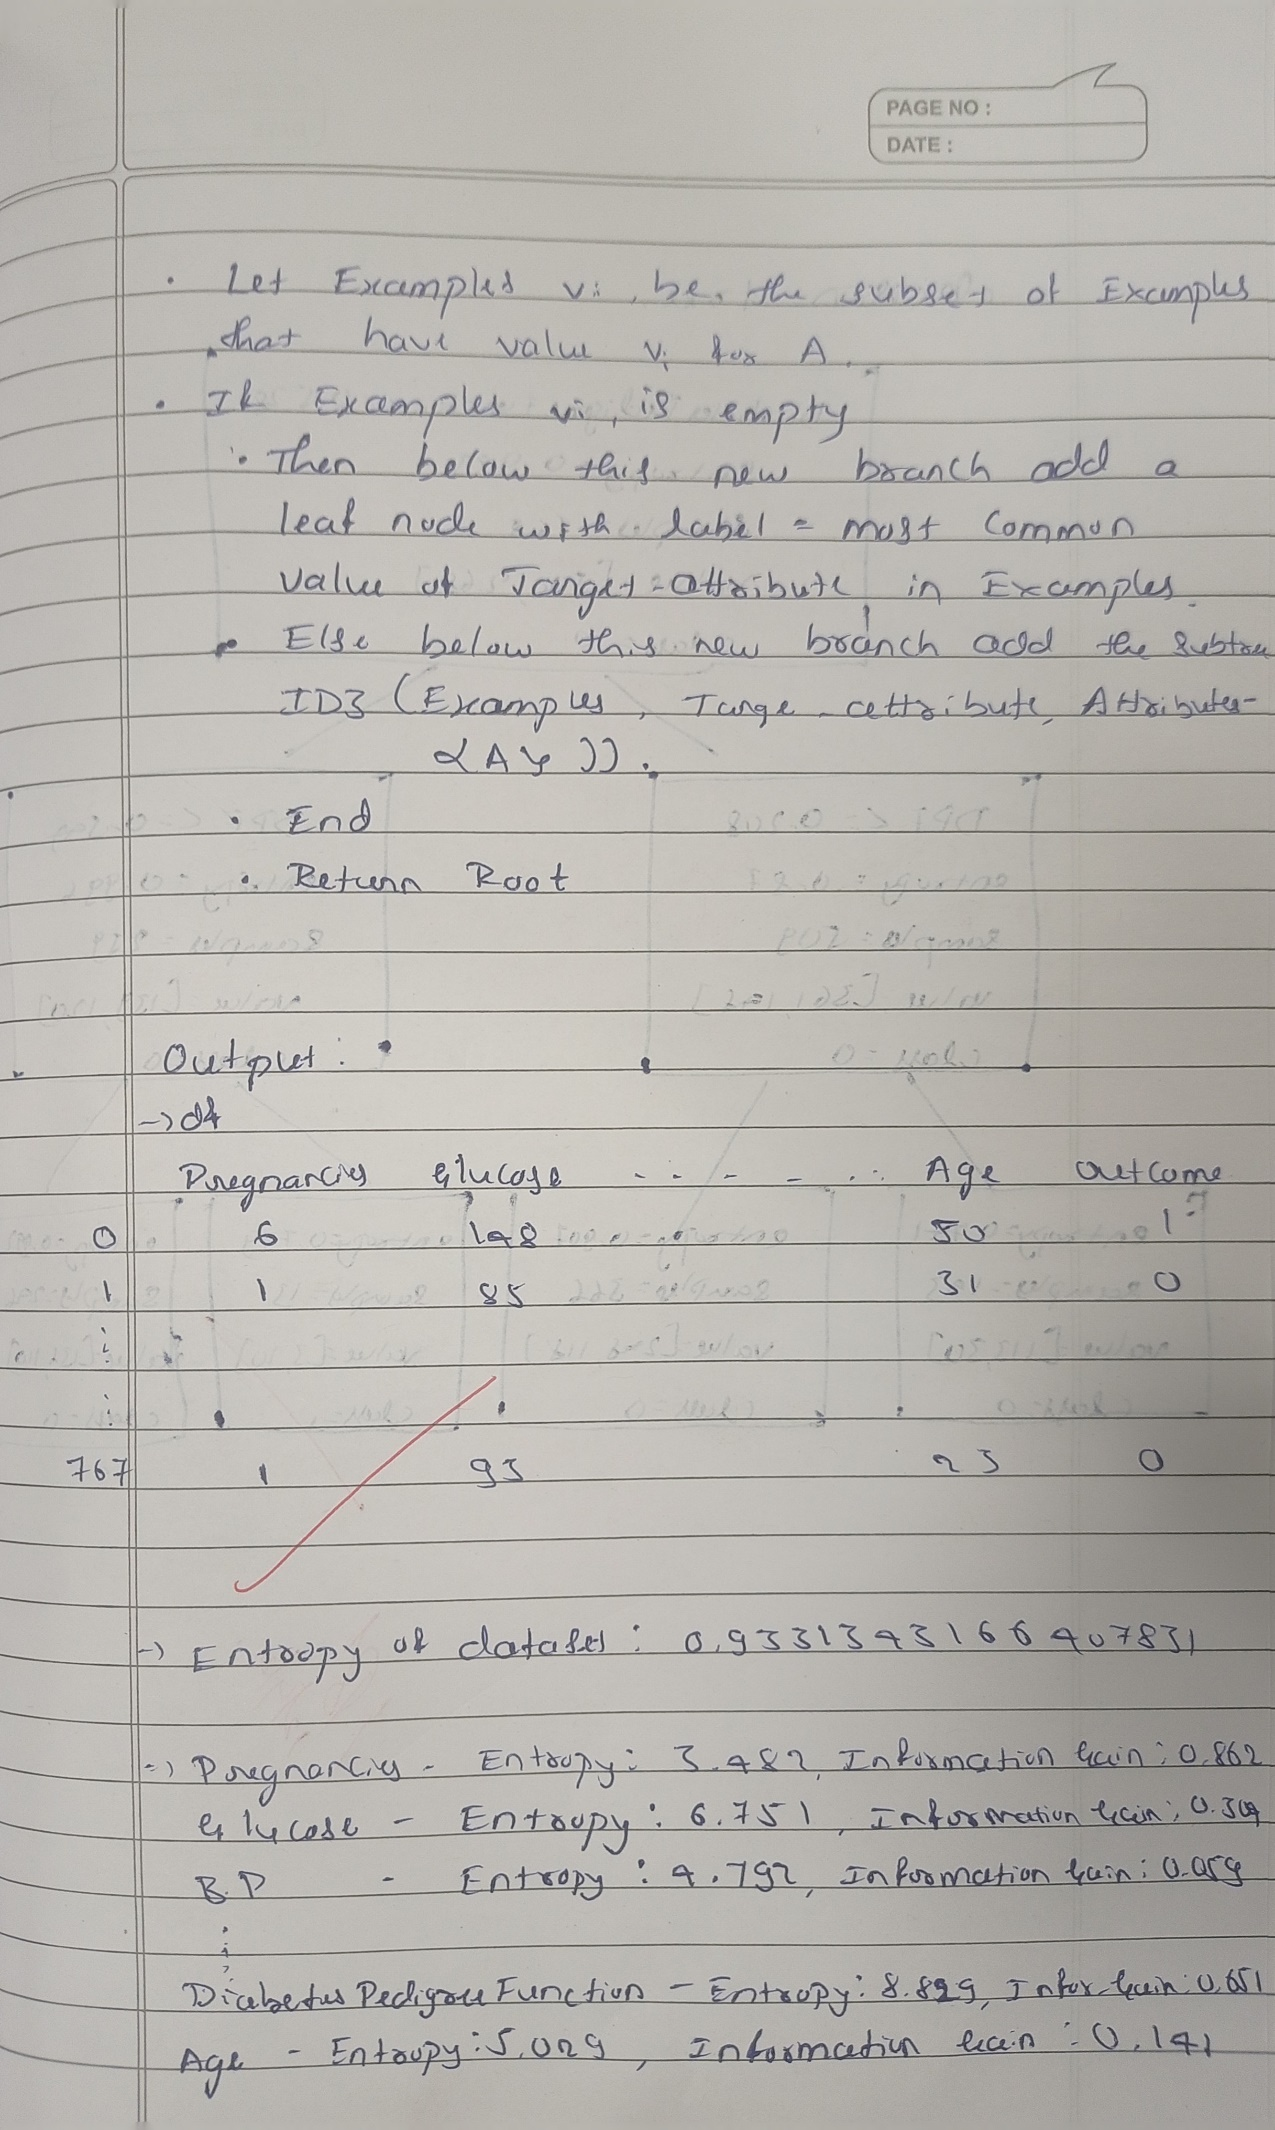 PAGE NO :
DATE :
• Let Examples vi, be, the subset of Examples
that have value vi for A.
• If Examples vi, is empty
• Then below this new branch add a
leaf node with label = most common
value of Target-attribute in Examples.
• Else below this new branch add the subtree
ID3 (Examples, Targe-attribute, Attributes-
{A})).
• End
• Return Root
Output :
→ df
Pregnancies Glucose - - - - . . Age outcome
0 6 148 50 1
1 1 85 31 0
:
:
767 1 93 23 0
→ Entropy of dataset : 0.9331343166407831
→ Pregnancies - Entropy: 3.482, Information Gain : 0.862
Glucose - Entropy : 6.751, Information Gain : 0.304
B.P - Entropy : 4.792, Information Gain : 0.059
:
Diabetes Pedigree Function - Entropy : 8.829, Infor-Gain : 0.651
Age - Entropy : 5.029, Information Gain : 0.141